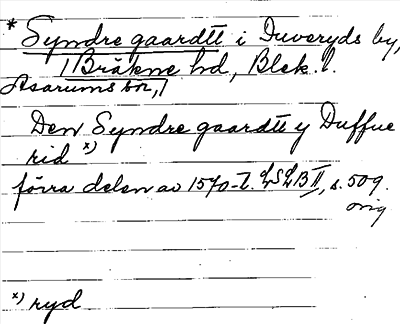 * Syndre gaardtt i Duveryds by,
/Bräkne hd, Blek. l.
Asarums sn,/
Den Syndre gaardtt y Duffue
rid x)
förra delen av 1570-t. LSLB II, s. 509.
orig
x) ryd